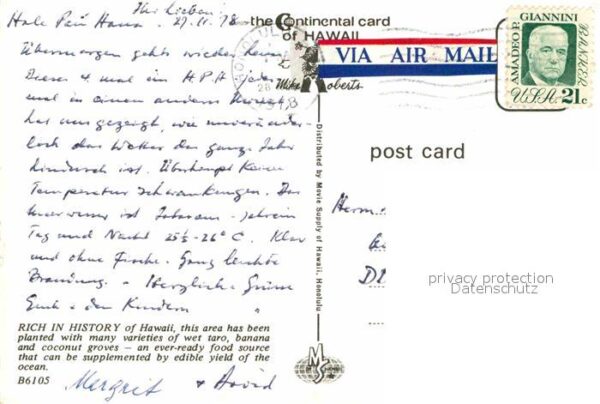 Ihr Lieben!
Hale Pau Hana. 27.11.78
Übermorgen geht's wieder heim.
Dieses 4. mal in H.P.H., jedes
mal in einem andern Monat,
hat uns gezeigt, wie unveränder-
lich das Wetter das ganze Jahr
hindurch ist. Überhaupt keine
Temperatur Schwankungen. Das
Meerwasser ist Jahraus - jahrein
Tag und Nacht 25½-26° C. Klar
und ohne Fische. Ganz leichte
Brandung. - Herzliche Grüsse
Euch + den Kindern
Margrit + Arvid
RICH IN HISTORY of Hawaii, this area has been
planted with many varieties of wet taro, banana
and coconut groves – an ever-ready food source
that can be supplemented by edible yield of the
ocean.
B6105
the Continental card
of HAWAII
Mike Roberts
VIA AIR MAIL
AMADEO P. GIANNINI
BANKER
U.S.A. 21c
HONOLULU
28
post card
Distributed by Movie Supply of Hawaii, Honolulu
MS
privacy protection
Datenschutz